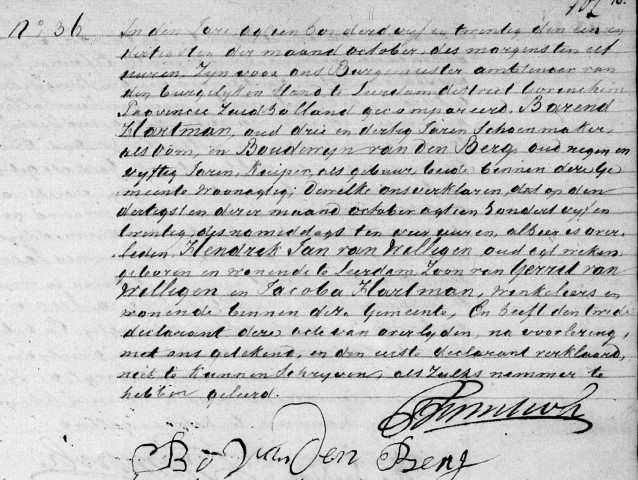 N.o 36
In den Jare agtien honderd vijf en twentig den een en
dertigsten der maand october, des morgens ten elf
uuren, Zyn voor ons Burgemeester ambtenaar van
den burgelyken Stand te Leerdam district Gorinchem
Provincie Zuid Holland gecompareerd, Barend
Hartman, oud drie en dertig Jaren Schoenmaker
als oom, en Boudewyn van den Berg, oud negen en
vyftig Jaren, Kuiper, als gebuur, beide binnen dese Ge
meente Woonagtig; Dewelke ons verklaren, dat op den
dertigsten deser maand october agtien honderd vyf en
twentig, des namiddags ten vier uuren, alhier is over
leden, Hendrik Jan van Welligen, oud agt weken
geboren en wonende te Leerdam, Zoon van Gerrit van
Welligen en Jacoba Hartman, Winkeliers en
wonende binnen deze Gemeente, En heeft den twede
declarant deze acte van overlyden, na voorlezing,
met ons getekend, en den eerste declarant verklaard,
niet te kunnen Schryven, als Zulks nimmer te
hebben geleerd.
Bo van den Berg